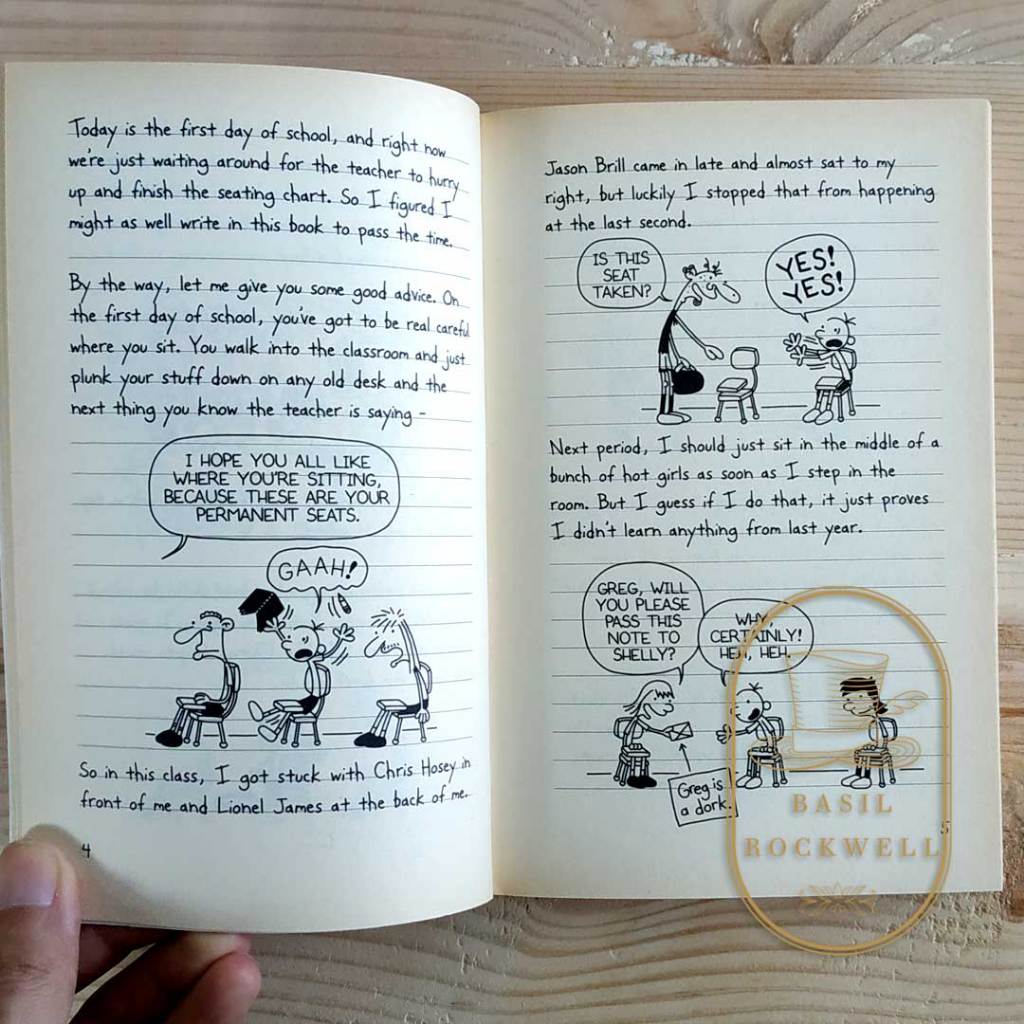 Today is the first day of school, and right now
we're just waiting around for the teacher to hurry
up and finish the seating chart. So I figured I
might as well write in this book to pass the time.
By the way, let me give you some good advice. On
the first day of school, you've got to be real careful
where you sit. You walk into the classroom and just
plunk your stuff down on any old desk and the
next thing you know the teacher is saying -
I HOPE YOU ALL LIKE
WHERE YOU'RE SITTING,
BECAUSE THESE ARE YOUR
PERMANENT SEATS.
GAAH!
So in this class, I got stuck with Chris Hosey in
front of me and Lionel James at the back of me.
4
Jason Brill came in late and almost sat to my
right, but luckily I stopped that from happening
at the last second.
IS THIS
SEAT
TAKEN?
YES!
YES!
Next period, I should just sit in the middle of a
bunch of hot girls as soon as I step in the
room. But I guess if I do that, it just proves
I didn't learn anything from last year.
GREG, WILL
YOU PLEASE
PASS THIS
NOTE TO
SHELLY?
WHY
CERTAINLY!
HEH, HEH.
Greg is
a dork.
5
BASIL
ROCKWELL